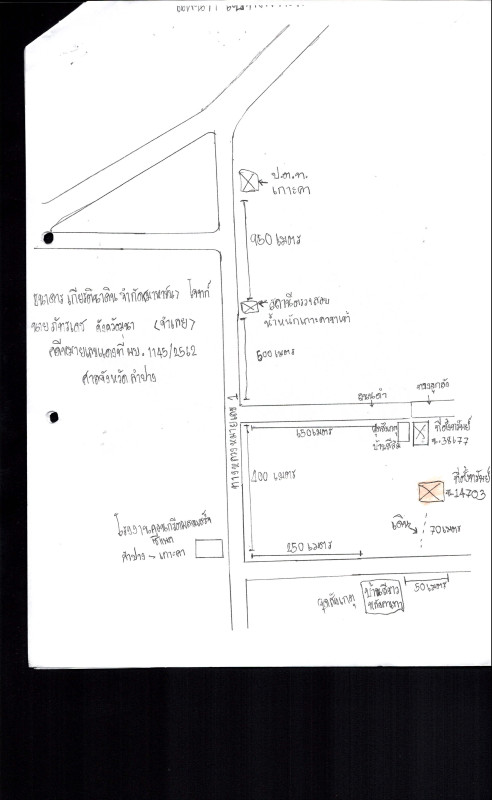 ป.ต.ท.
เกาะคา
950 เมตร
สถานีตรวจสอบ
น้ำหนักเกาะคาขาเข้า
ธนาคาร เกียรตินาคิน จำกัด(มหาชน) โจทก์
นาย ภัทรเดช ดังควัฒนา (จำเลย)
คดีหมายเลขแดงที่ ผบ. 1145/2562
ศาลจังหวัด ลำปาง
500 เมตร
ทางหลวงหมายเลข 1
650 เมตร
จุดสังเกต
ที่ตั้งทรัพย์
ฉ.38677
400 เมตร
ที่ตั้งทรัพย์
ฉ.14703
เดิน
70 เมตร
ลำปาง - เกาะคา
250 เมตร
จุดสังเกต
50 เมตร